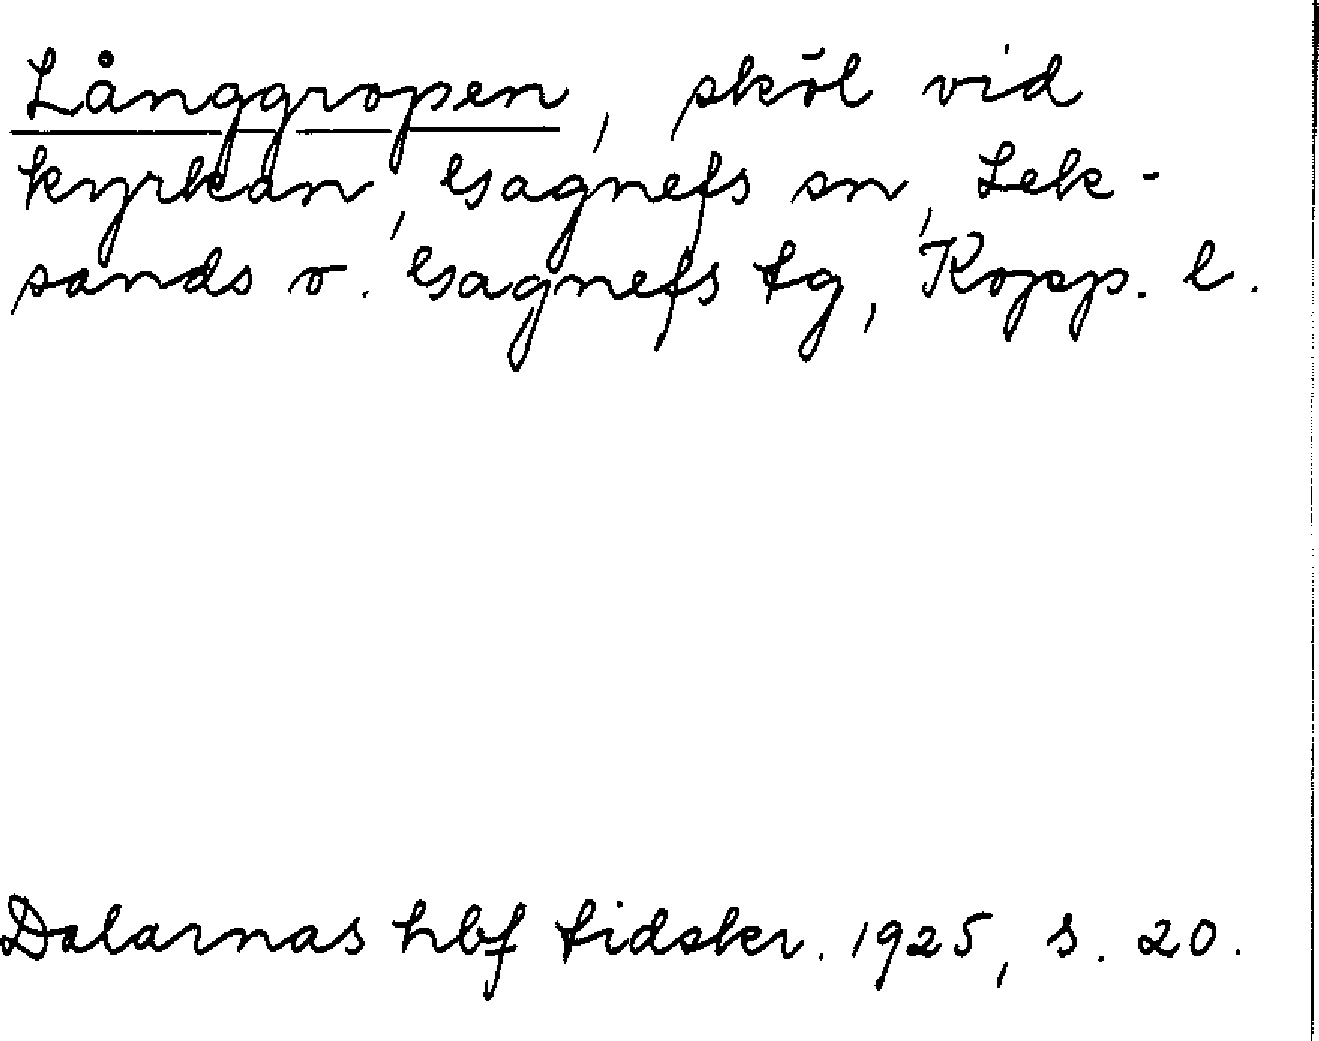 Långgropen, sköl vid
kyrkan, Gagnefs sn, Lek-
sands o. Gagnefs tg, Kopp. l.
Dalarnas hbf tidskr. 1925, s. 20.